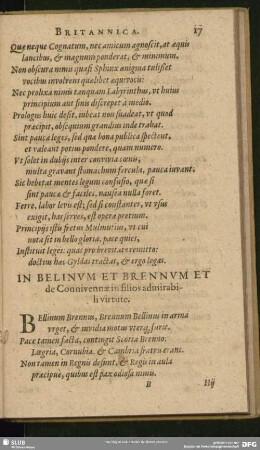 BRITANNICA. 17
Que neque Cognatum, nec amicum agnoscit, at æquis
lancibus, & magnum ponderat, & minimum.
Non obscura nimis quasi Sphinx ænigma tulisset
vocibus involvens quælibet æquivocis:
Nec prolixa nimis tanquam Labyrinthus, ut huius
principium aut finis discrepet a medio.
Prologus huic desit, iubeat non suadeat, vt quod
præcipit, obsequium grandius inde trahat.
Sint pauca leges, sed qua bona publica spectent,
et valeant potius pondere, quam numero.
Vt solet in dubijs inter convivia cœnis,
multa gravant stomachum fercula, pauca iuvant.
Sic hebetat mentes legum confusio, quæ si
sint pauca & faciles, nausea nulla foret.
Ferre, labor levis est; sed si constanter, vt vsus
exigit, has serves, est opera pretium.
Principijs istis fretus Mulmutius, vt cui
nota sit in bello gloria, pace quies,
Instituit leges: quas pro brevitate remitto:
doctius has Gyldas tractat, & ergo legas.
IN BELINVM ET BRENNVM ET
de Connivenna in filios admirabi-
li virtute.
BEllinum Brennus, Brennum Bellinus in arma
vrget, & invidia motus vterq; furit.
Pace tamen facta, contingit Scotia Brenno:
Lœgria, Cornubia, & Cambria fratris erant.
Non tamen in Regnis desunt, & Regis in aula
præcipue, quibus est pax odiosa nimis.
B Hij
SLUB